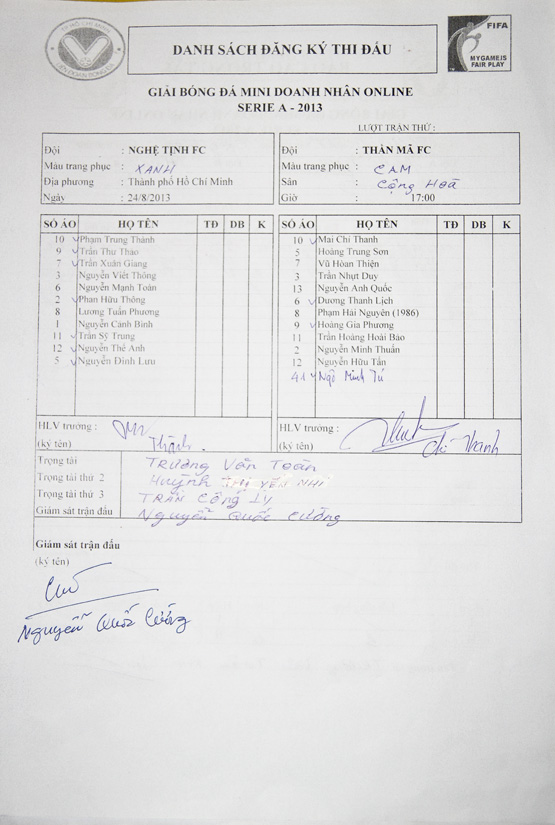 TP. HỒ CHÍ MINH
LIÊN ĐOÀN BÓNG ĐÁ
DANH SÁCH ĐĂNG KÝ THI ĐẤU
FIFA
MY GAME IS
FAIR PLAY
GIẢI BÓNG ĐÁ MINI DOANH NHÂN ONLINE
SERIE A - 2013
LƯỢT TRẬN THỨ :
Đội : NGHỆ TỊNH FC
Màu trang phục : XANH
Địa phương : Thành phố Hồ Chí Minh
Ngày : 24/8/2013
Đội : THẦN MÃ FC
Màu trang phục : CAM
Sân : Cộng Hoà
Giờ : 17:00
SỐ ÁO HỌ TÊN TĐ DB K
10 Phạm Trung Thành
9 Trần Thu Thao
7 Trần Xuân Giang
3 Nguyễn Viết Thông
6 Nguyễn Mạnh Toàn
2 Phan Hữu Thông
8 Lương Tuấn Phương
1 Nguyễn Cảnh Bình
11 Trần Sỹ Trung
12 Nguyễn Thế Anh
5 Nguyễn Đình Lưu
SỐ ÁO HỌ TÊN TĐ DB K
10 Mai Chí Thanh
5 Hoàng Trung Sơn
7 Vũ Hòan Thiện
3 Trần Nhựt Duy
13 Nguyễn Anh Quốc
6 Dương Thanh Lịch
8 Phạm Hải Nguyên (1986)
9 Hoàng Gia Phương
11 Trần Hoàng Hoài Bảo
2 Nguyễn Minh Thuấn
12 Nguyễn Hữu Tấn
41 Ngô Minh Tú
HLV trưởng :
(ký tên) Thành
HLV trưởng :
(ký tên) Chí Thanh
Trọng tài Trương Văn Toàn
Trọng tài thứ 2 Huỳnh NHI
Trọng tài thứ 3 TRẦN CÔNG LÝ
Giám sát trận đấu Nguyễn Quốc Cường
Giám sát trận đấu
(ký tên)
Nguyễn Quốc Cường